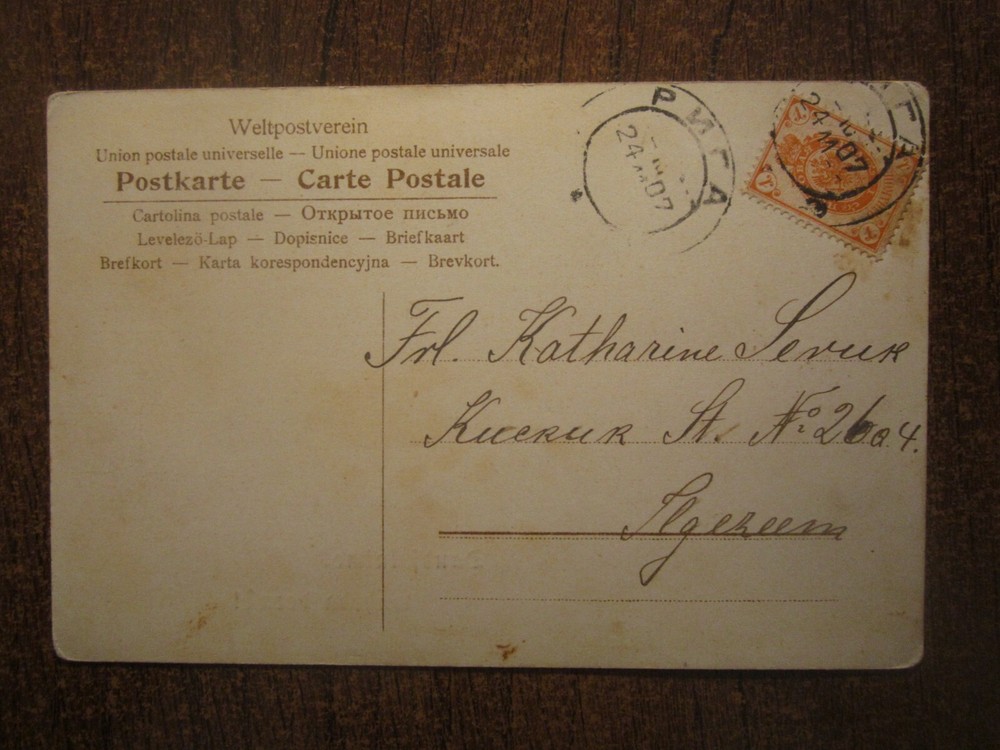 Weltpostverein
Union postale universelle — Unione postale universale
Postkarte — Carte Postale
Cartolina postale — Открытое письмо
Levelező-Lap — Dopisnice — Briefkaart
Brefkort — Karta korespondencyjna — Brevkort.
РИГА
24 07
ГА
24 07
Frl. Katharine
St. No 26 a 4.
Ilgezeem